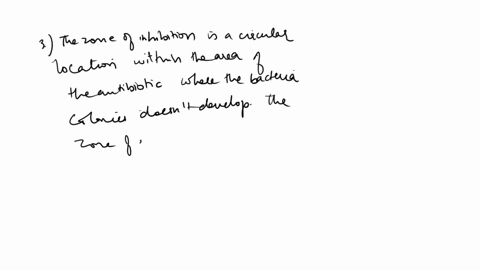 3) The zone of inhibition is a circular
location within the area of
the antibiotic where the bacteria
colonies doesn't develop. the
zone of